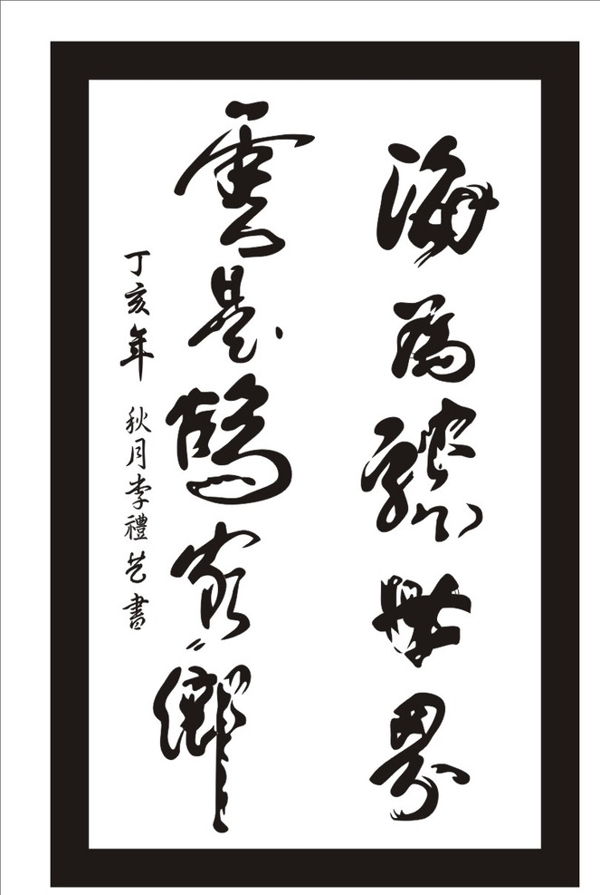 海為龍世界
雲是鶴家鄉
丁亥年 秋月李禮艺書